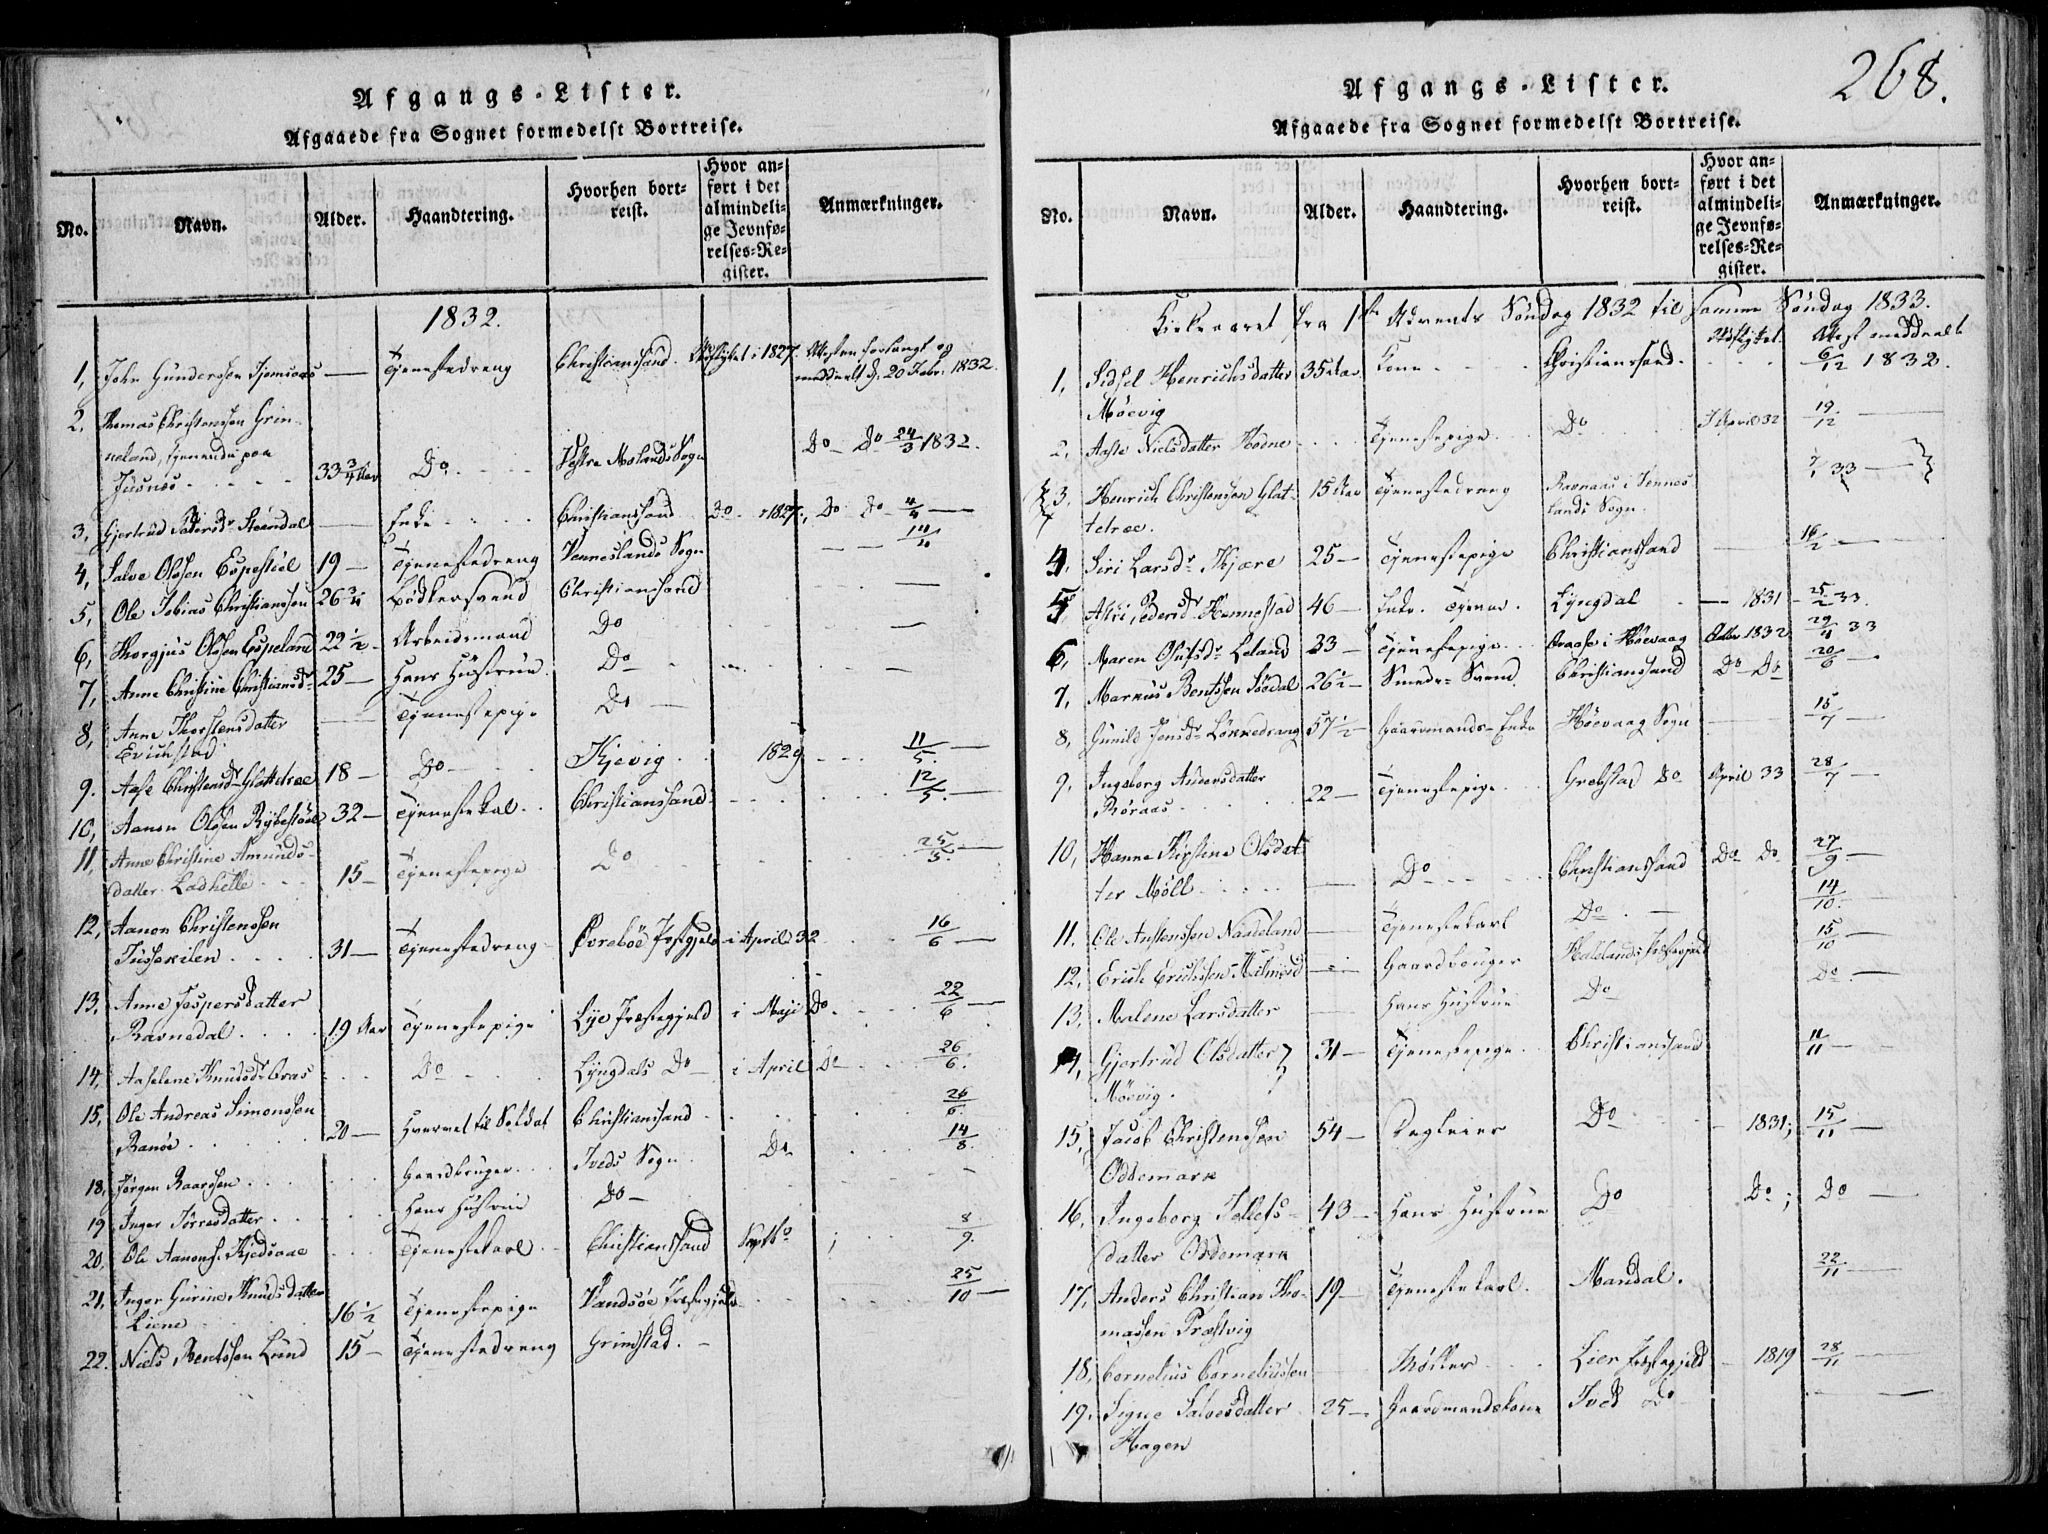 Afgangs-Lister.
Afgaaede fra Sognet formedelst Bortreise.
No. Navn. Alder. Haandtering. Hvorhen bortreist. Hvor anført i det almindelige Jevnførelses-Register. Anmærkninger.
1832.
1, John Gundersen Tjomsaas — Tjenestedreng Christiansand. Udflyttet i 1827. Attesten forlangt og
meddeelt d. 20 Febr. 1832.
2, Thomas Christenssen Grin-
neland, tjenende paa
Jusnes 33 3/4 Aar Do Vestre Molands Sogn Do Do 24/3 1832.
3, Gjertrud Pedersdr Steendal — Enke Christiansand Do 1827, Do Do 4/4 —
4, Salve Olssen Espestøel 19 — Tjenestedreng Venneslands Sogn
5, Ole Tobias Christianssen 26 3/4 Bødkersvend Christianssand
6, Thorgjus Olssen Espeland 22 1/2 Arbeidsmand Do
7, Anne Christine Christiansdr 25 — Hans Hustrue Do
8, Anne Thorstensdatter
Erichstad — Tjenestepige Do
9. Aase Christensdr Glattetræe 18 — Do Kjevig 1829 11/5 —
10, Aanon Olssen Rybestøel 32 — Tjenestekal Christianssand 12/5 —
11, Anne Christine Amunds-
datter Ladhelle 15 — Tjenestepige Do 25/5 —
12, Aanon Christenssen
Tusskilen 31 — Tjenestedreng Øvrebøe Præstgjeld i April 32 16/6 —
13, Anne Jespersdatter
Ravnedal 19 Aar Tjenestepige Lye Præstegjeld i Maji Do 22/6 —
14, Aaselene Knudsdr Aas Do Lyngdals Do i April Do 26/6
15, Ole Andreas Simonssen
Ranøe 20 — Hvervet til Soldat Christianssand 26/6
18, Jørgen Kaarssen Gaardbruger Tveds Sogn Do 14/8
19 Inger Torresdatter Hans Hustrue Do
20, Ole Aanons. Kjedsaae Tjenestekarl Christianssand Septbr 8/9
21, Inger Gurine Knudsdatter
Liene 16 1/2 Tjenestepige Vandsøe Præstegjeld 25/10 —
22. Niels Bentssen Lund 15 — Tjenestedreng Grimstad.
268.
Afgangs-Lister.
Afgaaede fra Sognet formedelst Bortreise.
No. Navn. Alder. Haandtering. Hvorhen bortreist. Hvor anført i det almindelige Jevnførelses-Register. Anmærkninger.
Kirkeaaret fra 1ste Advents Søndag 1832 til samme Søndag 1833.
1, Sidsel Henrichsdatter
Møevig 35 Aar Kone Christianssand. Udflyttet. Attest meddeelt
6/12 1832.
2, Aase Nielsdatter Hodne Tjenestepige Do I April 32 19/12 —
3, Henrich Christenssen Glat-
tetræe. 15 Aar Tjenestedreng Ravnaas i Vennes-
lands Sogn. 7/1 33 —
4, Siri Larsdr Kjære 25 — Tjenestepige Christianssand — 16/2 —
5, Alvi Pedersdr Hannestad 46 — Enke. Tjener. Lyngdal — 1831 25/2 33
6, Maren Olufsdr Leland 33 — Tjenestepige Aase i Høevaag Octbr 1832 29/4 33
7, Markus Bentssen Søedal 26 1/2 — Smede-Svend Christianssand Do Do 20/6 —
8, Gunild Jensdr Løkkedrang 57 1/2 — Gaardmands-Enke Høevaag Sogn 15/7 —
9, Ingeborg Andersdatter
Røraas 22 — Tjenestepige Grebstad Do April 33 28/7 —
10, Hanne Kirstine Olsdat-
ter Møll — Do Christianssand Do Do 27/9 —
11, Ole Anstenssen Naadeland — Tjenestekarl Do 14/10 —
12, Erich Erichssen Gaardbruger Halelands Præstegjeld 15/10 —
13, Malene Larsdatter — Hans Hustrue Do Do —
14, Gjertrud Olsdatter
Møevig. 31 — Tjenestepige Christianssand 11/11 —
15, Jacob Christenssen
Oddemark 54 — Dagleier Do 1831; 15/11 —
16, Ingeborg Tellefs-
datter Oddemark 43 — Hans Hustrue Do Do; Do —
17, Anders Christian Tho-
massen Præstvig 19 — Tjenestekarl Mandal. 22/11 —
18, Cornelius Corneliussen Møller Lier Præstegjeld 1819 28/11 —
19, Signe Salvesdatter
Hagen 25 — Gaardmandskone Tved Do